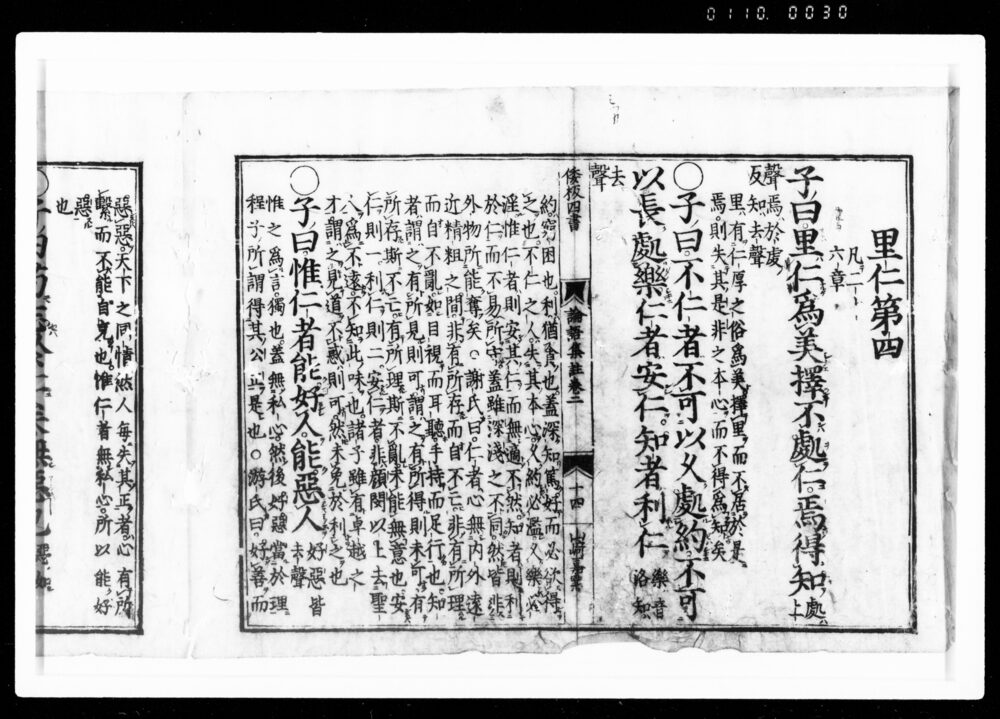 0110. 0030
里仁第四
凡二十六章
子曰里仁爲美擇不處仁焉得知 處上
聲焉於虔
反知去聲
里有仁厚之俗爲美擇里而不居於是
焉則失其是非之本心而不得爲知矣
○子曰不仁者不可以久處約不可
以長處樂仁者安仁知者利仁 樂音洛知
去聲
倭板四書
論語集註卷二
十四
約窮困也利猶貪也蓋深知篤好而必欲得
之也不仁之人失其本心久約必濫久樂必
淫惟仁者則安其仁而無適不然知者則利
於仁而不易所守蓋雖深淺之不同然皆非
外物所能奪矣○謝氏曰仁者心無內外遠
近精粗之間非有所存而自不亡非有所理
而自不亂如目視而耳聽手持而足行也知
者謂之有所見則可謂之有所得則未可有
所存斯不亡有所理斯不亂未能無意也安
仁則一利仁則二安仁者非顏閔以上去聖
人爲不遠不知此味也諸子雖有卓越之
才謂之見道不惑則可然未免於利之也
○子曰惟仁者能好人能惡人 好惡皆去聲
惟之爲言獨也蓋無私心然後好惡當於理
程子所謂得其公正是也○游氏曰好善而
惡惡天下之同情然人每失其正者心有所
繫而不能自克也惟仁者無私心所以能好
惡也